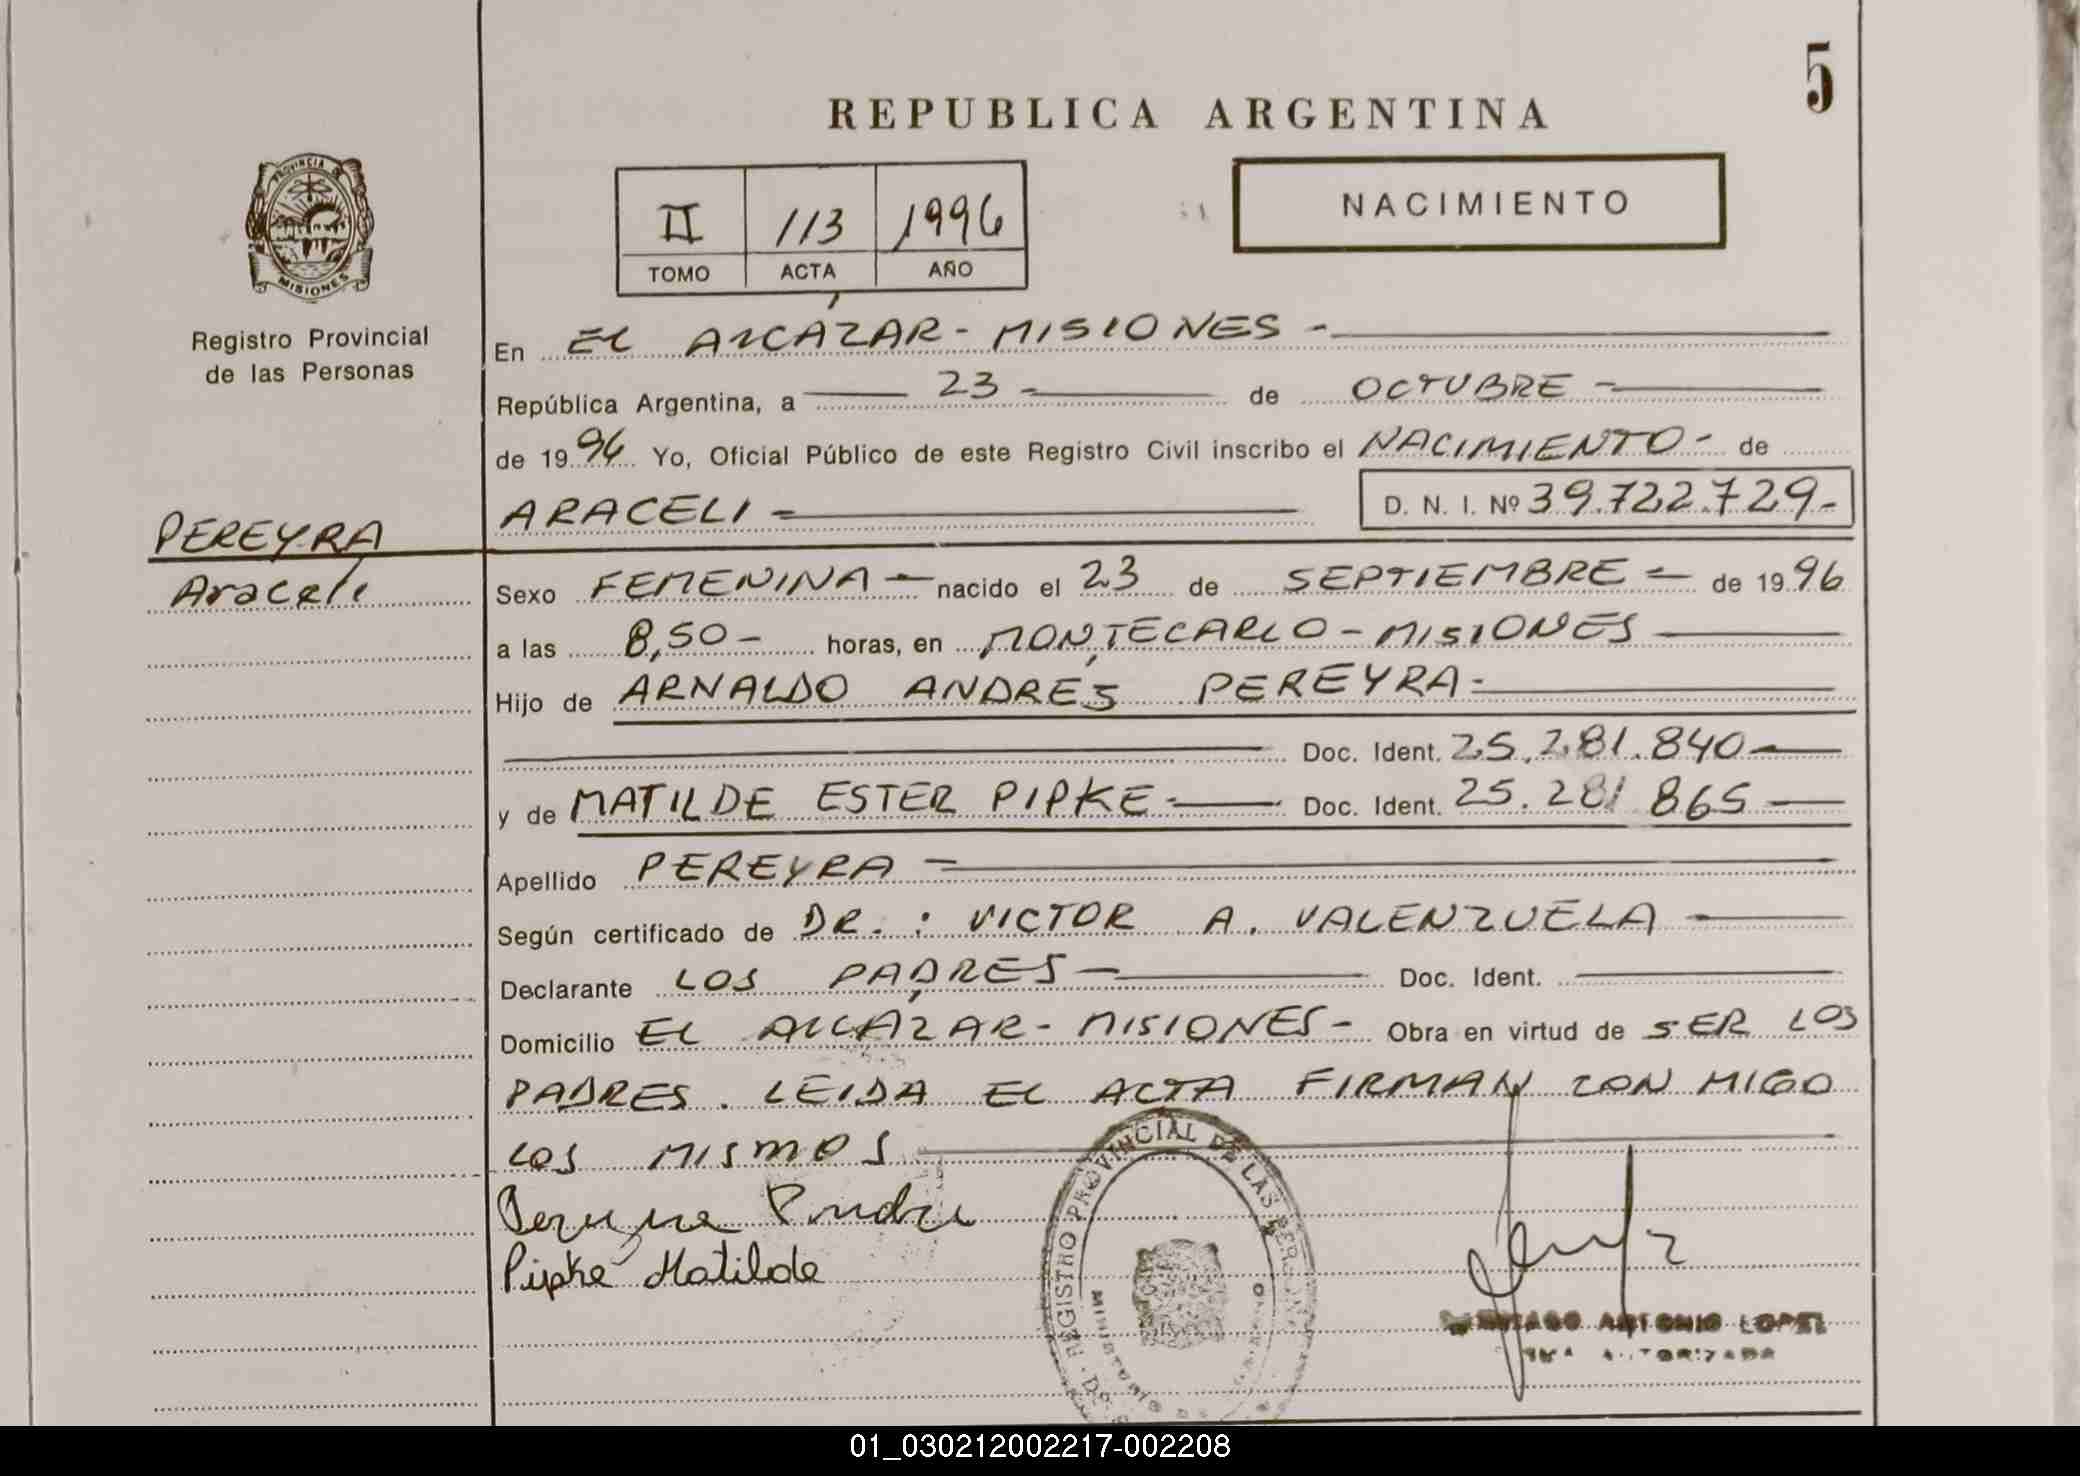 5
REPUBLICA ARGENTINA
PROVINCIA DE
MISIONES
Registro Provincial
de las Personas
II 113 1996
TOMO ACTA AÑO
NACIMIENTO
En EL ALCÁZAR - MISIONES -
República Argentina, a 23 - de OCTUBRE -
de 1996 Yo, Oficial Público de este Registro Civil inscribo el NACIMIENTO - de
ARACELI - D. N. I. Nº 39.722.729-
PEREYRA
Araceli
Sexo FEMENINA - nacido el 23 de SEPTIEMBRE - de 1996
a las 8,50 - horas, en MONTECARLO - MISIONES
Hijo de ARNALDO ANDRÉS PEREYRA -
Doc. Ident. 25.281.840 -
y de MATILDE ESTER PIPKE - Doc. Ident. 25.281 865 -
Apellido PEREYRA -
Según certificado de DR. : VICTOR A. VALENZUELA -
Declarante LOS PADRES - Doc. Ident.
Domicilio EL ALCÁZAR - MISIONES - Obra en virtud de SER LOS
PADRES. LEIDA EL ACTA FIRMAN CON MIGO
LOS MISMOS
Pipke Matilde
REGISTRO PROVINCIAL DE LAS PERSONAS
MINISTERIO
ANTONIO LOPEZ
AUTORIZADA
01_030212002217-002208